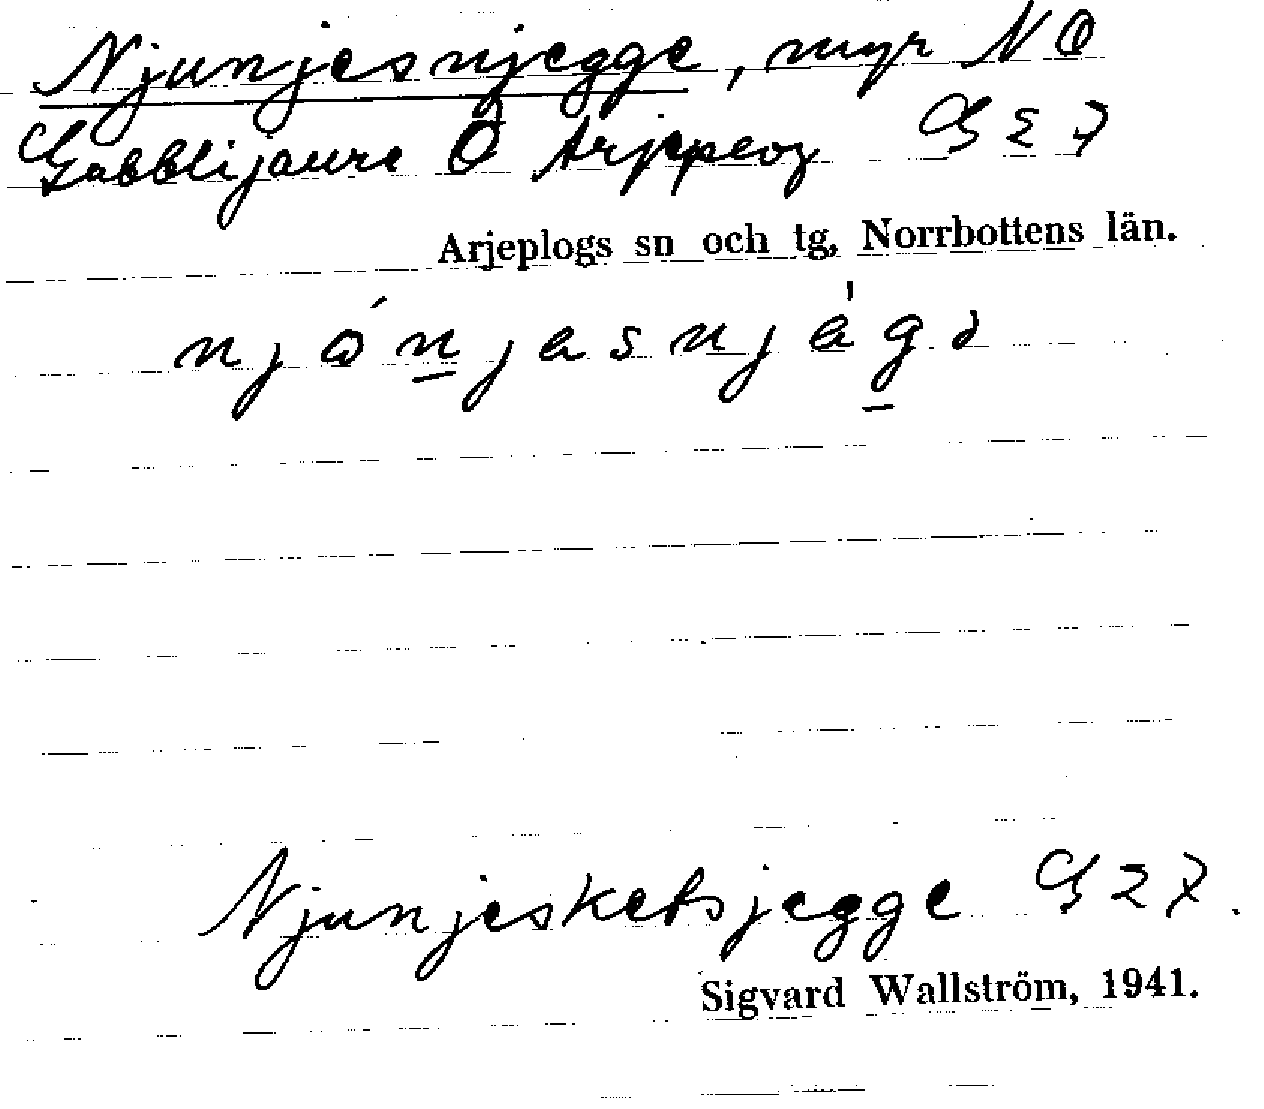 Njunjesnjegge, myr NO
Gabblijaure Ö Arjeplog G 2 7
Arjeplogs sn och tg, Norrbottens län.
njónjasnjágə
Njunjesketsjegge G 2 7.
Sigvard Wallström, 1941.